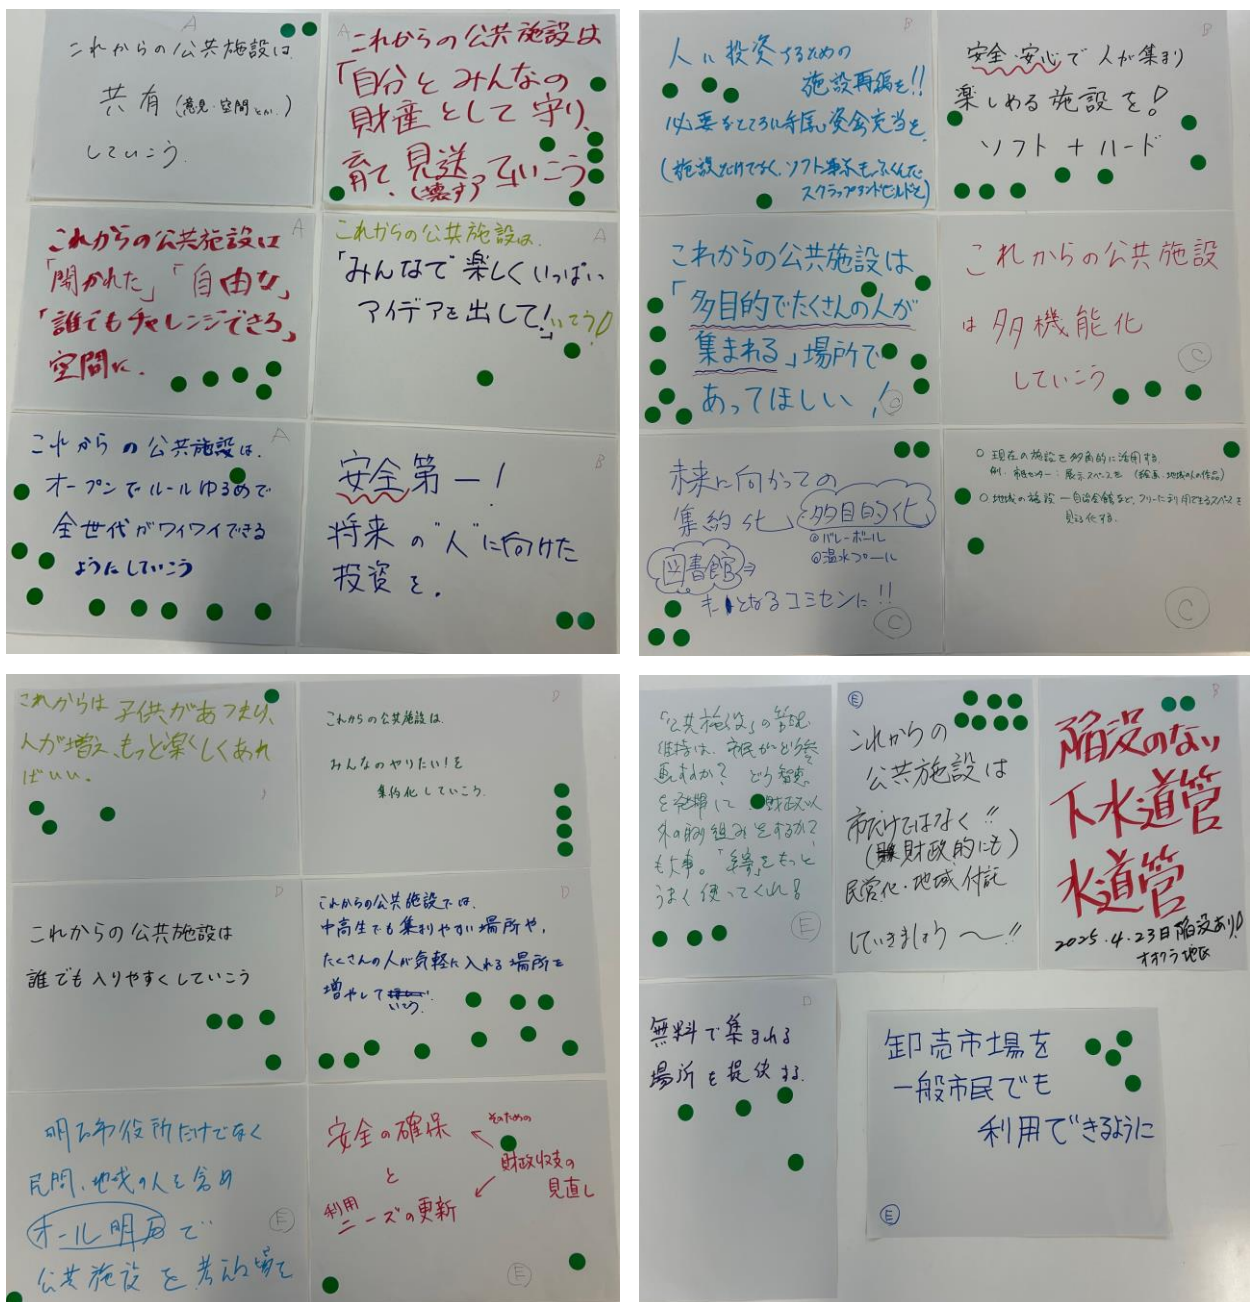 A
これからの公共施設は、
共有(意見・空間とか.)
していこう.
A
これからの公共施設は
「自分とみんなの
財産として守り、
育て、見送っていこう
(壊す)
A
これからの公共施設は
「開かれた」「自由な」
「誰でもチャレンジできる」
空間に.
A
これからの公共施設は.
「みんなで楽しくいっぱい
アイデアを出して!」いこう!
A
これからの公共施設は、
オープンでルールゆるめで
全世代がワイワイできる
ようにしていこう
B
安全第一!
将来の"人"に向けた
投資を.
B
人に投資するための
施設再編を!!
必要なところに
資金充当を
(施設だけでなく、ソフト事業もふくんだ
スクラップアンドビルドを)
B
安全・安心で人が集まり
楽しめる施設を!
ソフト+ハード
これからの公共施設は
「多目的でたくさんの人が
集まれる」場所で
あってほしい!
C
これからの公共施設
は多機能化
していこう
C
未来に向かっての
集約化、と多目的化
◎バレーボール
◎温水プール
図書館⇒
となるコミセンに!!
C
○現在の施設を多角的に活用する.
例.市民センター:展示スペースを(絵画、地域の人の作品)
○地域の施設ー自治会館など、フリーに利用できるスペースを
見える化する.
C
これからは子供があつまり、
人が増え、もっと楽しくあれ
ばいい.
D
これからの公共施設は、
みんなのやりたい!を
集約化していこう.
D
これからの公共施設は
誰でも入りやすくしていこう
D
これからの公共施設では、
中高生でも集まりやすい場所や、
たくさんの人が気軽に入れる場所を
増やして
いこう.
明石市役所だけでなく
民間、地域の人も含め
オール明石で
公共施設を考える場を
E
安全の確保
と
利用
ニーズの更新
そのための
財政収支の
見直し
E
「公共施設」の管理
維持は、市民がどう参
画するか?どう智恵
を発揮して財政以
外の取り組みをするか?
も大事。「　」をもっと
うまく使ってくれ!
E
E
これからの
公共施設は
市だけではなく!!
(財政的にも)
民営化・地域付託
していきましょう~!!
B
陥没のない
下水道管
水道管
2025.4.23日陥没あり!
オオクラ地区
D
無料で集まれる
場所を提供する.
卸売市場を
一般市民でも
利用できるように
E